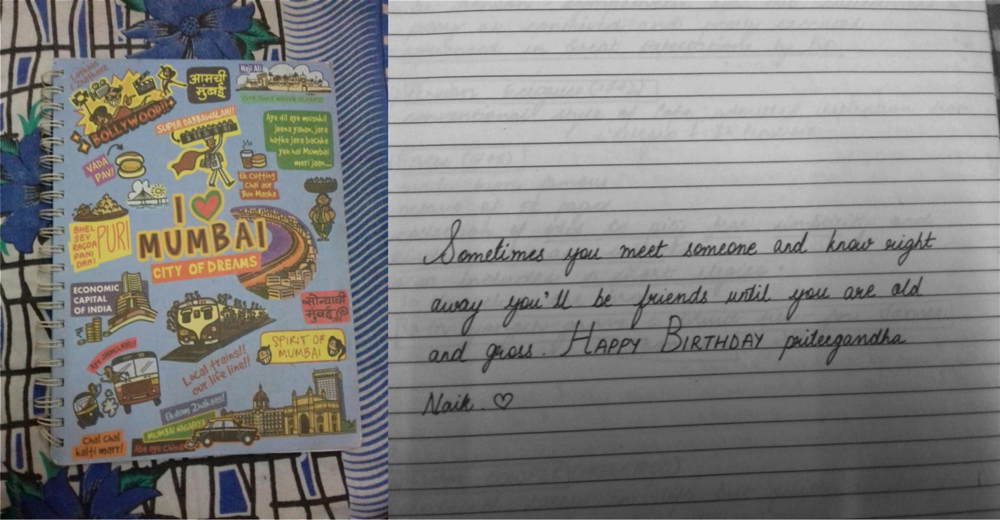 Lakhon
आमची
मुंबई
Haji Ali
BOLLYWOOD!!
SUPER DABBAWALAH!!
Aye dil aye mushkil
jeena yahan, zara
hatke zara bachke
yeh hai Mumbai
meri jaan...
VADA
PAV!
Ek Cutting
Chai aur
Bun Maska
I
MUMBAI
CITY OF DREAMS
BHEL
SEV
RAGDA
PANI
DAHI
PURI
ECONOMIC
CAPITAL
OF INDIA
सोन्याची
मुंबई
SPIRIT OF
MUMBAI
Local trains!!
our life line!!
Ekdum Zhakaas!
MUMBAI NAGARIYA
Chal Chal
halti merr!
Sometimes you meet someone and know right
away you'll be friends until you are old
and gross. HAPPY BIRTHDAY pritergandha
Naik. ♡